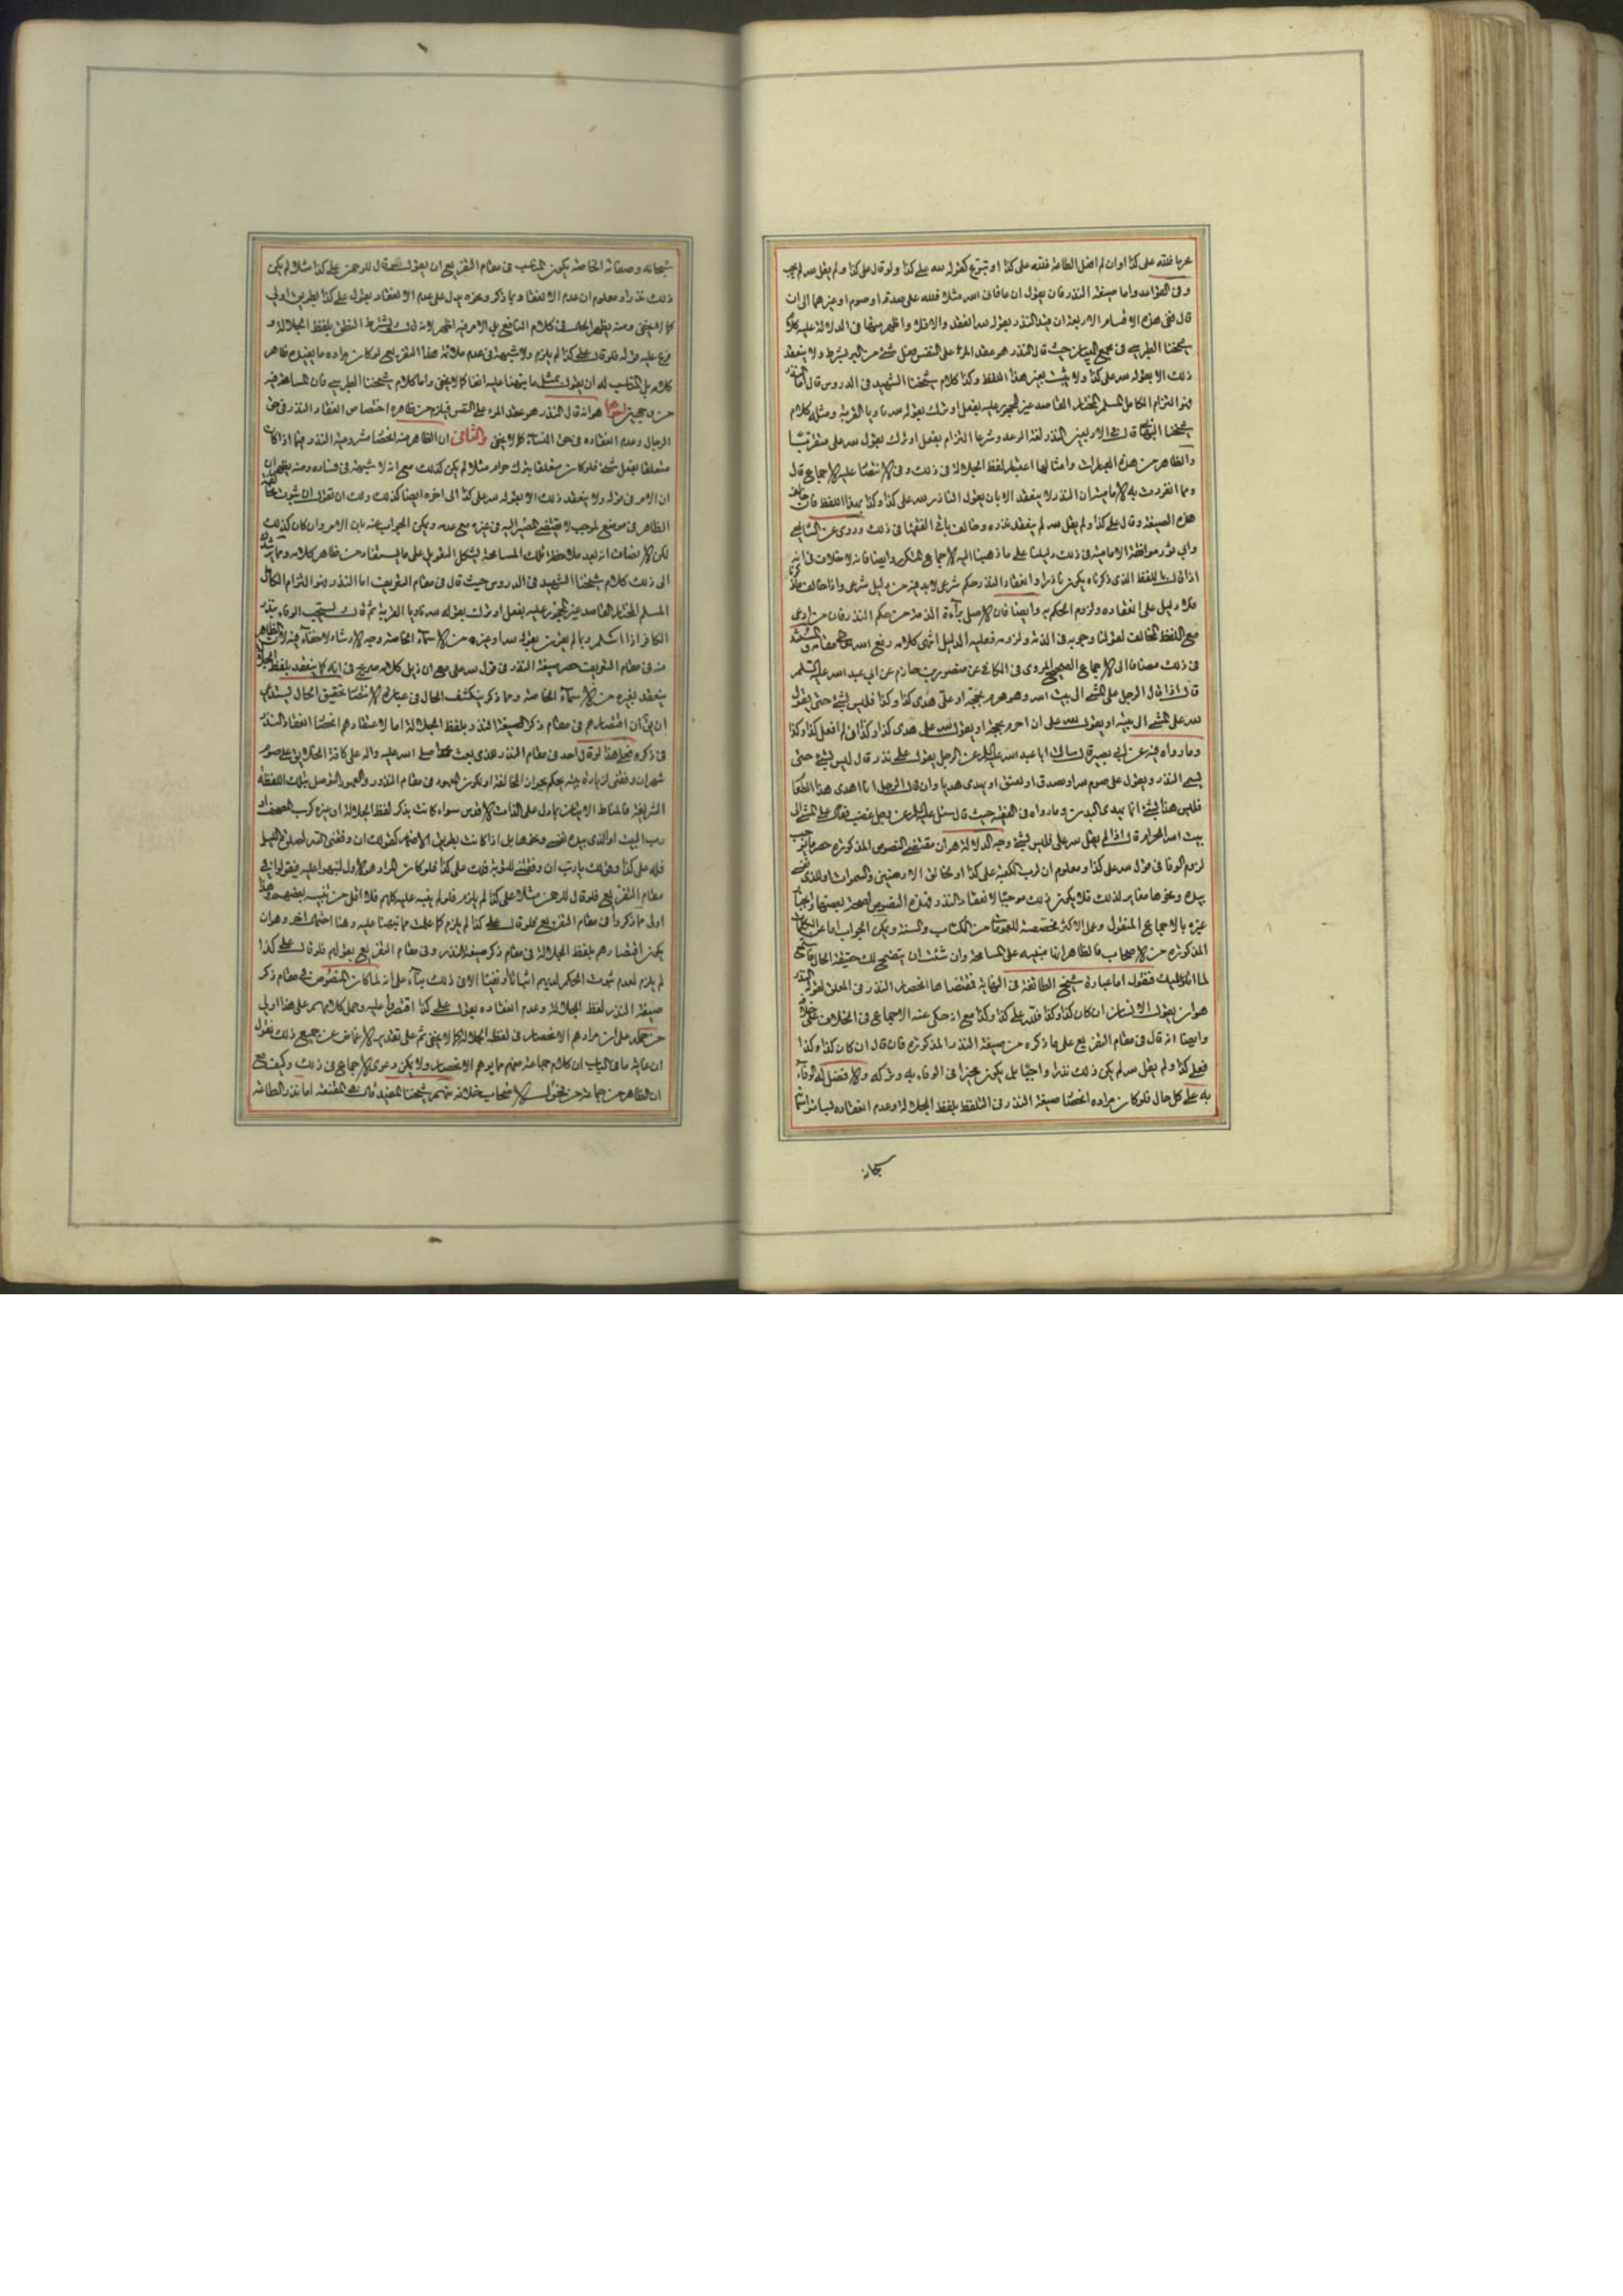 عربا فلله على كذا اوان لم افعل الطاعة فلله على كذا او تبرع كقوله لله علي كذا ولو قال على كذا ولم يقل لله لم يجب
وفى القواعد واما صيغة النذر فان يقول ان عافانى الله مثلا فلله على صدقة او صوم او غيرهما الى ان
قال ففى هذه الاقسام الاربعة ان قيد النذر بقوله لله انعقد والا فلا واظهر منها فى الدلالة عليه كلام
شيخنا الطبرسي فى مجمع البيان حيث قال النذر هو عقد المرء على النفس فعل شئ من البر بشرط ولا ينعقد
ذلك الا بقوله لله على كذا ولا يثبت بغير هذا اللفظ وكذا كلام شيخنا الشهيد فى الدروس قال اما النذر
فهو التزام الكامل المسلم المختار القاصد غير المحجور عليه بفعل او ترك بقوله لله ناويا القربة ومثله كلام
شيخنا البهائي قال في الاربعين النذر لغة الوعد وشرعا التزام بفعل او ترك بقول لله على متقربا
والظاهر من هذه العبارات وامثالها اعتبار لفظ الجلالة فى ذلك وفى الانتصار عليه الاجماع قال
ومما انفردت به الامامية ان النذر لا ينعقد الا بان يقول الناذر لله على كذا وكذا بهذا اللفظ فان خالف
هذه الصيغة وقال على كذا ولم يقل لله لم ينعقد نذره وخالف باقي الفقهاء فى ذلك وروى عن الشافعي
وابي ثور موافقة الامامية فى ذلك دليلنا على ما ذهبنا اليه الاجماع المتكرر وايضا فانه لا خلاف فى انه
اذا قال باللفظ الذى ذكرناه يكون ناذرا وانعقاد النذر حكم شرعى لابد فيه من دليل شرعى واذا خالف ما ذكرناه
فلا دليل على انعقاده ولزوم الحكم به وايضا فان الاصل برآءة الذمة من حكم النذر فان من ادعى
مع اللفظ المخالف لقولنا وجوبه فى الذمة ولزومه فعليه الدليل انتهى كلامه رفع الله مقامه والسند
فى ذلك مضافا الى الاجماع الصحيح المروى فى الكافى عن منصور بن حازم عن ابى عبد الله عليه السلم
قال اذا قال الرجل على المشى الى بيت الله وهو محرم بحجة او على هدى كذا وكذا فليس بشئ حتى يقول
لله على المشى الى بيته او يقول لله على ان احرم بحجة او يقول لله على هدى كذا وكذا ان لم افعل كذا وكذا
وما رواه فيه عن ابى بصير قال سالت ابا عبد الله عليه السلم عن الرجل يقول على نذر قال ليس بشئ حتى
يسمى النذر ويقول على صوم لله او تصدق او يعتق او يهدى هديا وان قال الرجل انا اهدى هذا الطعام
فليس هذا بشئ انما يهدى البدن وما رواه فى الفقيه حيث قال سئل عليه السلم عن رجل غضب فقال على المشى الى
بيت الله الحرام قال اذا لم يقل لله على فليس بشئ وجه الدلالة هو ان مقتضى النصوص المذكورة حصر ما يوجب
لزوم الوفا فى قول لله على كذا ومعلوم ان لرب الكعبة على كذا او لخالق الارضين والسموات او للذى نفسي
بيده ونحوها مغاير لذلك فلا يكون ذلك موجبا لانعقاد النذر فهذه النصوص
غيره بالاجماع المنقول وعمل الاكثر مخصصة للعمومات من الكتاب والسنة ويمكن الجواب اما عن العبارات
المذكورة من الاصحاب فالظاهر انها مبنية على المسامحة وان شئت ان يتضح لك حقيقة الحال فاستمع
لما اتلو عليك فنقول اما عبارة شيخ الطائفة فى النهاية فمقتضاها انحصار النذر فى المعلق لقوله النذر
هو ان يقول الانسان ان كان كذا وكذا فلله على كذا وكذا مع انه حكى عنه الاجماع فى الخلاف على خلافه
وايضا انه قال فى مقام التفريع على ما ذكره من صيغة النذر المذكورة فان قال ان كان كذا وكذا
فعلى كذا ولم يقل لله لم يكن ذلك نذرا واجبا بل يكون مخيرا فى الوفاء به وتركه والافضل له الوفاء
به على كل حال فلو كان مراده انحصار صيغة النذر فى التلفظ بلفظ الجلالة وعدم انعقاده لسائر اسمآء
سبحانه
سبحانه وصفاته الخاصة يكون المناسب فى مقام التفريع ان يقول فلو قال للرحمن على كذا مثلا لم يكن
ذلك نذرا ومعلوم ان عدم الانعقاد بما ذكر ونحوه يدل على عدم الانعقاد بقول على كذا بطريق اولى
كما لا يخفى ومنه يظهر الحال فى كلام النافع بل الامر فيه اظهر لانه قال ويشترط النطق بلفظ الجلالة و
فرع عليه قوله فلو قال على كذا لم يلزم ولا شبهة فى عدم ملائمة هذا التفريع لو كان مراده ما يفيده ظاهر
كلامه بل المناسب له ان يقول بمثل ما نبهنا عليه انفا كما لا يخفى واما كلام شيخنا الطبرسي فان المسامحة فيه
من وجهين احدهما هو انه قال النذر هو عقد المرء على النفس فيلزم من ظاهره اختصاص انعقاد النذر فى حق
الرجال وعدم انعقاده فى حق النساء كما لا يخفى والثانى ان الظاهر منه انحصار مشروعية النذر فيما اذا كان
متعلقا بفعل شئ فلو كان متعلقا بترك حرام مثلا لم يكن كذلك مع انه لا شبهة فى فساده ومنه يظهر ان
ان الامر فى قوله ولا ينعقد ذلك الا بقوله لله على كذا الى اخره ايضا كذلك ولك ان تقول ان ثبوت مخالفة
الظاهر فى موضع لموجب لا يقتضى المصير اليه فى غيره مع عدمه ويمكن الجواب عنه بان الامر وان كان كذلك
لكن الانصاف انه بعد ملاحظة تلك المسامحة يشكل التعويل على ما يستفاد من ظاهر كلامه ومما يرشدك
الى ذلك كلام شيخنا الشهيد فى الدروس حيث قال فى مقام التعريف اما النذر فهو التزام الكامل
المسلم المختار القاصد غير المحجور عليه بفعل او ترك بقوله لله ناويا القربة ثم قال ويستحب الوفاء بنذر
الكافر اذا اسلم وبالم يقرن بقوله لله او غيره من الاسمآء الخاصة وجه الارشاد لا خفآء فيه لان الظاهر
منه فى مقام التعريف حصر صيغة النذر فى قول لله على مع ان ذيل كلامه صريح فى انه كما ينعقد بلفظ الجلالة
ينعقد بغيره من الاسمآء الخاصة ومما ذكر ينكشف الحال فى عبارة الانتصار تحقيق الحال يستدعى
ان يق ان اقتصارهم فى مقام ذكر الصيغة النذر بلفظ الجلالة اما لاعتقادهم انحصار انعقاد النذر
فى ذكره فعلى هذا لو قال احد فى مقام النذر للذى بعث محمدا صلى الله عليه واله على كافة الخلايق على صوم
شهر ان وفقنى لزيارة بيته يحكم بجواز المخالفة او يكون المعهود فى مقام النذر والعهود التوصل بتلك اللفظة
الشريفة فالمناط الاتيان بما دل على الذات الاقدس سواء كانت بذكر لفظ الجلالة او غيره كرب المصحف او
رب البيت او للذى بيده نفسى ونحوها بل اذا كانت بطريق الاضمار كقولك ان وفقنى الله لصلوة الليل
فله على كذا وقولك يا رب ان وفقتنى للتوبة فلك على كذا فلو كان المراد هو الاول لنبهوا عليه فيقولوا فى
مقام التفريع فلو قال للرحمن مثلا على كذا لم يلزم فلو لم ينبه عليه كلهم فلا اقل من تنبيه بعضهم وهذا
اولى مما ذكروا فى مقام التفريع فلو قال على كذا لم يلزم كما علمت مما نبهنا عليه وهنا احتمال اخر وهو ان
يكون اقتصارهم بلفظ الجلالة فى مقام ذكر صيغة النذر وفى مقام التفريع بقولهم فلو قال على كذا
لم يلزم لعدم ثبوت الحكم لديهم اثباتا ونفيا الا فى ذلك بناء على انه لما كان المنصوص فى مقام ذكر
صيغة النذر لفظ الجلالة وعدم انعقاده بقول على كذا اقتصروا عليه وحمل كلامهم على هذا اولى
من حمله على ان مرادهم الانحصار فى لفظ الجلالة كما لا يخفى ثم على تقدير الاغماض عن جميع ذلك نقول
ان غاية ما فى الباب ان كلام جماعة منهم ما يوهم الانحصار ولا يمكن دعوى الاجماع فى ذلك وكيف مع
ان الظاهر من جماعة من فحول الاصحاب خلافه منهم شيخنا المفيد قال فى المقنعة اما نذر الطاعة